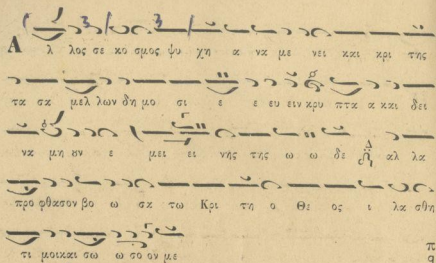 Α λ λος σε κο σμος ψυ χη α να με νει και κρι της
τα σα μελ λων δη μο σι ε ε ευ ειν κρυ πτα α και δει
να μη ουν ε μει ει νης της ω ω δε αλ λα
προ φθασον βο ω σα τω Κρι τη ο Θε ος ι λα σθη
τι μοι και σω ω σο ον με